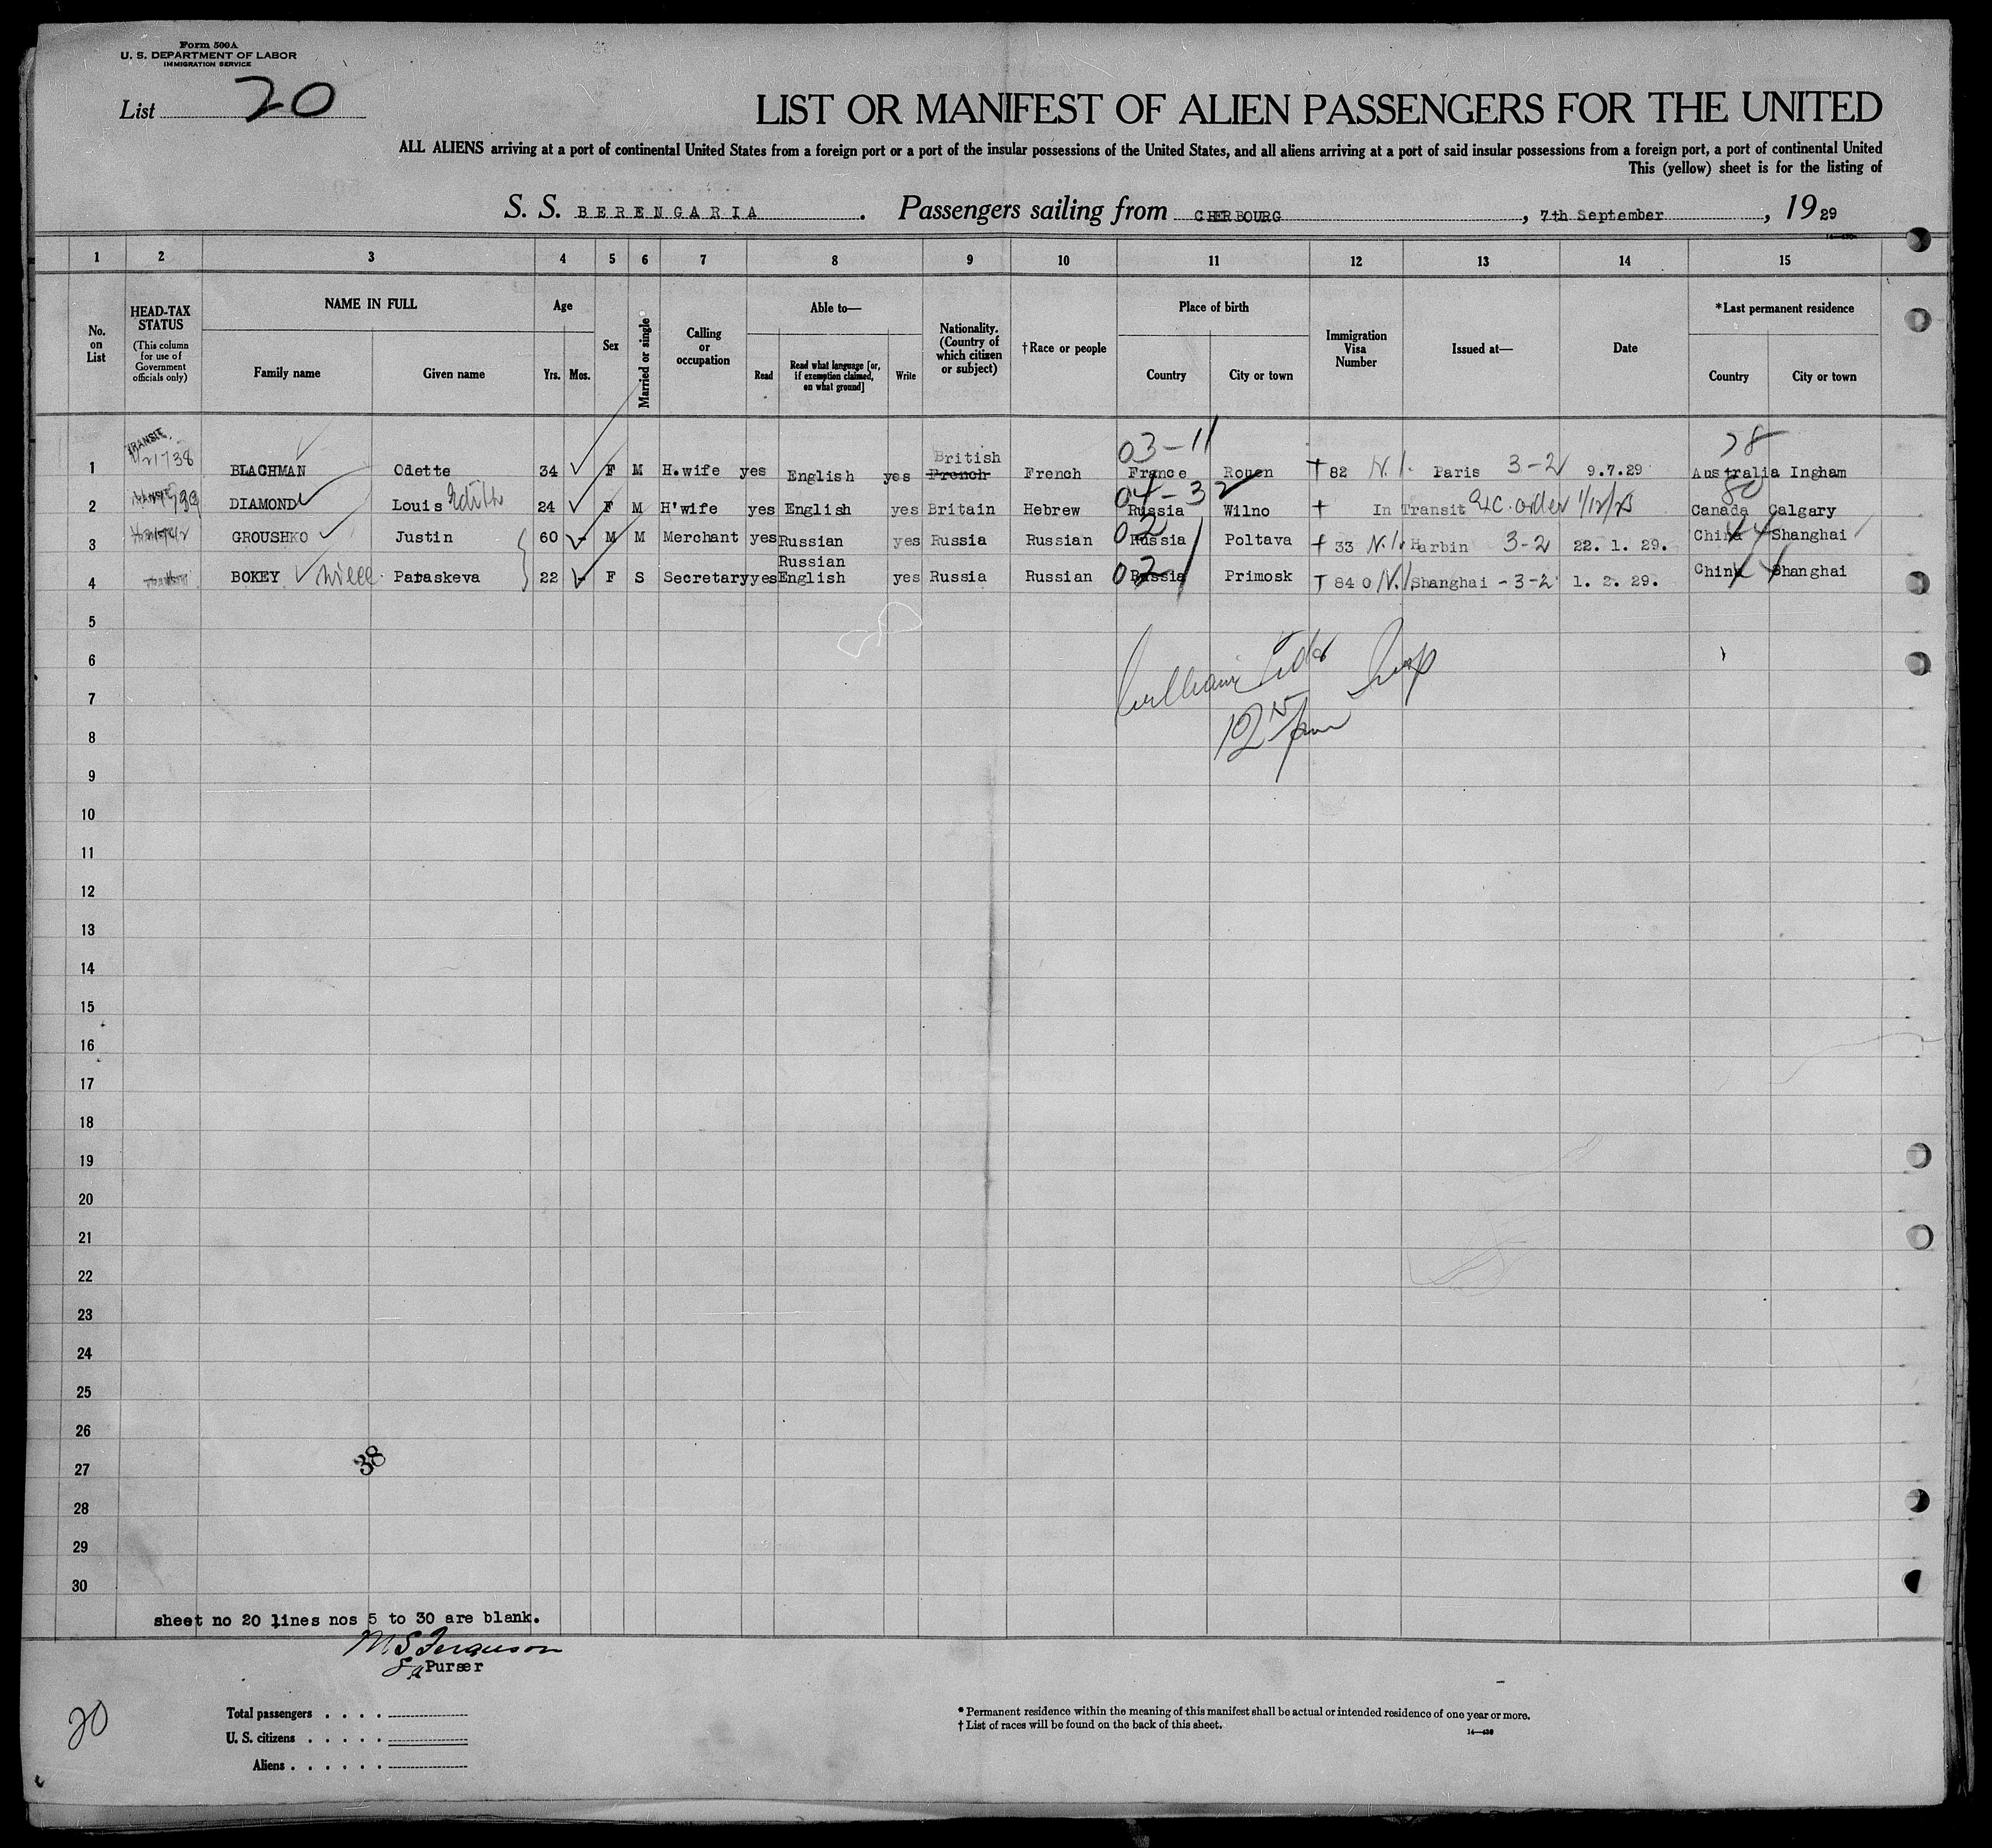 Form 500A
U. S. DEPARTMENT OF LABOR
IMMIGRATION SERVICE
List 20
LIST OR MANIFEST OF ALIEN PASSENGERS FOR THE UNITED
ALL ALIENS arriving at a port of continental United States from a foreign port or a port of the insular possessions of the United States, and all aliens arriving at a port of said insular possessions from a foreign port, a port of continental United
This (yellow) sheet is for the listing of
S. S. BERENGARIA . Passengers sailing from CHERBOURG , 7th September , 19 29
1 2 3 4 5 6 7 8 9 10 11 12 13 14 15
No. on List
HEAD-TAX STATUS
(This column for use of Government officials only)
NAME IN FULL
Family name Given name
Age
Yrs. Mos.
Sex
Married or single
Calling or occupation
Able to—
Read
Read what language [or, if exemption claimed, on what ground]
Write
Nationality. (Country of which citizen or subject)
†Race or people
Place of birth
Country City or town
Immigration Visa Number
Issued at—
Date
*Last permanent residence
Country City or town
TRANSIT 03-11 28
British
1 BLACHMAN Odette 34 F M H.wife yes English yes French French France Rouen †82 N.I. Paris 3-2 9.7.29 Australia Ingham
04-3 80
2 DIAMOND Louis Edith 24 F M H'wife yes English yes Britain Hebrew Russia Wilno † In Transit Exc. order Canada Calgary
02
3 GROUSHKO Justin 60 M M Merchant yes Russian yes Russia Russian Russia Poltava †33 N.I. Harbin 3-2 22. 1. 29. China Shanghai
Russian
4 BOKEY Paraskeva 22 F S Secretary yes English yes Russia Russian 02 Russia Primosk †840 N.I. Shanghai -3-2 1. 2. 29. China Shanghai
5
6
7
8
9
10
11
12
13
14
15
16
17
18
19
20
21
22
23
24
25
26
38
27
28
29
30
sheet no 20 lines nos 5 to 30 are blank.
M S Ferguson
Purser
20
Total passengers . . . .
U. S. citizens . . . . .
Aliens . . . . . .
* Permanent residence within the meaning of this manifest shall be actual or intended residence of one year or more.
† List of races will be found on the back of this sheet.